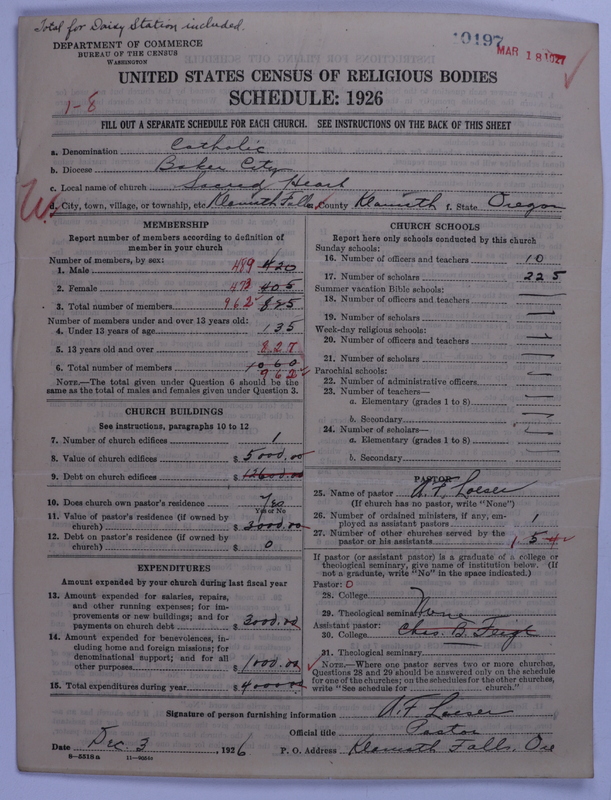 Total for Daisy Station included.
10197
MAR 18 1927
DEPARTMENT OF COMMERCE
BUREAU OF THE CENSUS
WASHINGTON
UNITED STATES CENSUS OF RELIGIOUS BODIES
SCHEDULE: 1926
1-8
FILL OUT A SEPARATE SCHEDULE FOR EACH CHURCH. SEE INSTRUCTIONS ON THE BACK OF THIS SHEET
a. Denomination Catholic
b. Diocese Baker City
c. Local name of church Sacred Heart
d. City, town, village, or township, etc Klamath Falls e. County Klamath f. State Oregon
MEMBERSHIP
Report number of members according to definition of
member in your church
Number of members, by sex:
1. Male 489 420
2. Female 473 405
3. Total number of members 962 825
Number of members under and over 13 years old:
4. Under 13 years of age 135
5. 13 years old and over 827
6. Total number of members 1060
962
NOTE.—The total given under Question 6 should be the
same as the total of males and females given under Question 3.
CHURCH BUILDINGS
See instructions, paragraphs 10 to 12
7. Number of church edifices 1
8. Value of church edifices $ 5000.00
9. Debt on church edifices $ 12600.00
10. Does church own pastor's residence Yes
Yes or No
11. Value of pastor's residence (if owned by
church) $ 3000.00
12. Debt on pastor's residence (if owned by
church) $ 0
EXPENDITURES
Amount expended by your church during last fiscal year
13. Amount expended for salaries, repairs,
and other running expenses; for im-
provements or new buildings; and for
payments on church debt $ 3000.00
14. Amount expended for benevolences, in-
cluding home and foreign missions; for
denominational support; and for all
other purposes $ 1000.00
15. Total expenditures during year $ 4000.00
CHURCH SCHOOLS
Report here only schools conducted by this church
Sunday schools:
16. Number of officers and teachers 10
17. Number of scholars 225
Summer vacation Bible schools:
18. Number of officers and teachers
19. Number of scholars
Week-day religious schools:
20. Number of officers and teachers
21. Number of scholars
Parochial schools:
22. Number of administrative officers
23. Number of teachers—
a. Elementary (grades 1 to 8)
b. Secondary
24. Number of scholars—
a. Elementary (grades 1 to 8)
b. Secondary
PASTOR
25. Name of pastor A. F. Loeser
(If church has no pastor, write "None")
26. Number of ordained ministers, if any, em-
ployed as assistant pastors 1
27. Number of other churches served by the
pastor or his assistants 1 5
If pastor (or assistant pastor) is a graduate of a college or
theological seminary, give name of institution below. (If
not a graduate, write "No" in the space indicated.)
Pastor: 0
28. College
29. Theological seminary None
Assistant pastor:
30. College Chas. B. Feigl
31. Theological seminary
NOTE.—Where one pastor serves two or more churches,
Questions 28 and 29 should be answered only on the schedule
for one of the churches; on the schedules for the other churches,
write "See schedule for church."
Signature of person furnishing information A. F. Loeser
Official title Pastor
Date Dec. 3, 1926 P. O. Address Klamath Falls, Ore
8-5518a